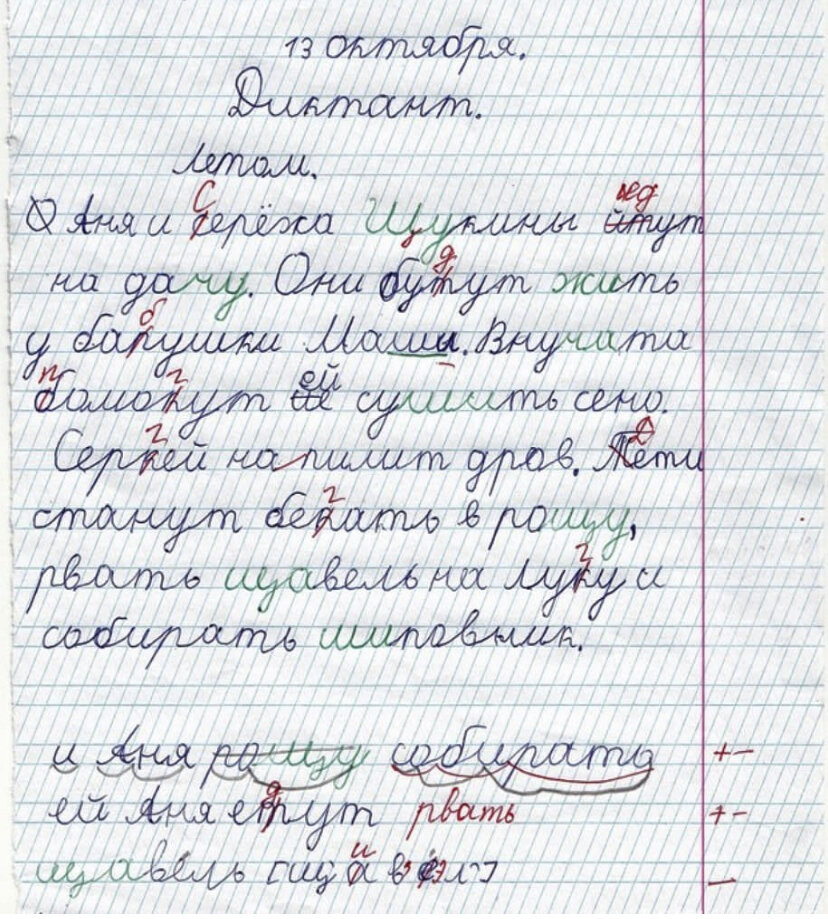 13 октября.
Диктант.
Летом.
Аня и серёжа Щукины йтут
на дачу. Они бутут жить
у бапушки Маши. Внучата
бомокут ей сушить сено.
Серкей напилит дров. Тети
станут бекать в рощу,
рвать щавель на луку и
собирать шиповник.
и Аня рощу собирать +-
ей Аня етут рвать +-
щавель –